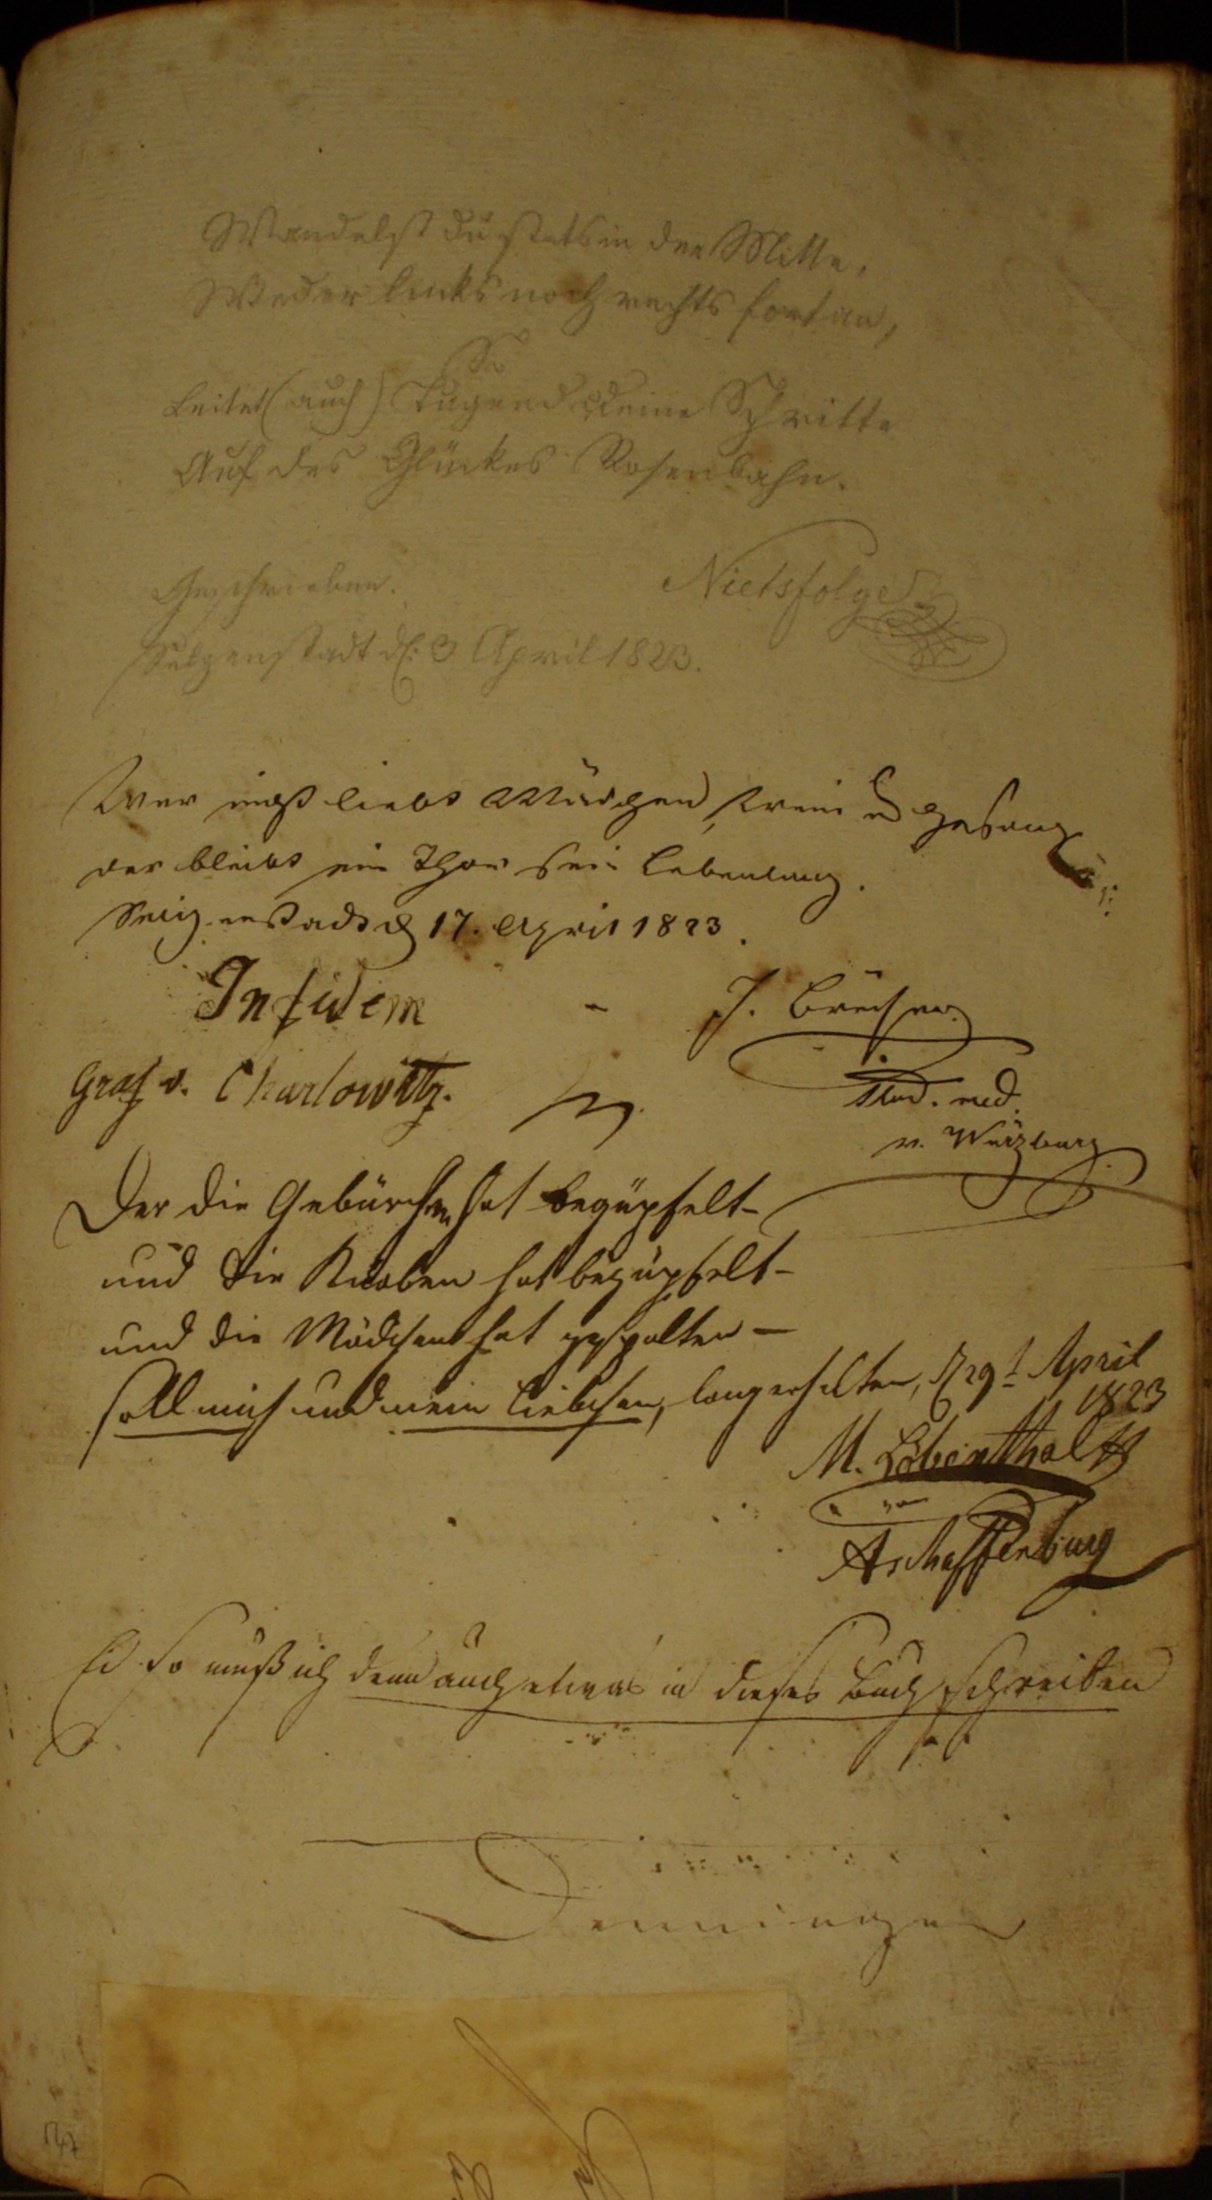 Wandelst du stets in der Mitte,
Weder links noch rechts fortan,
So
Leitet (auch) Tugend deine Schritte
Auf des Glückes Rosenbahn.
Geschrieben.
Nietsfolge
Selgenstadt d: 3 April 1823.
Wer nicht liebt Mädchen, Wein u Gesang
der bleibt ein Thor sein Lebenlang.
Seligenstadt d 17. April 1823.
In fidem
J. Brückner
Graf v. Charlowitz.
Stud. med.
v. Würzburg
Der die Gebürche hat begüpfelt -
und die Knaben hat bezüpfelt -
und die Mädchen hat gespalten -
soll mich und mein Liebchen, lang erhalten, d 29t April
1823
M. Löbenthal
von
Aschaffenburg
Ei so muß ich denn auch etwas in dieses Buch schreiben
Denninger